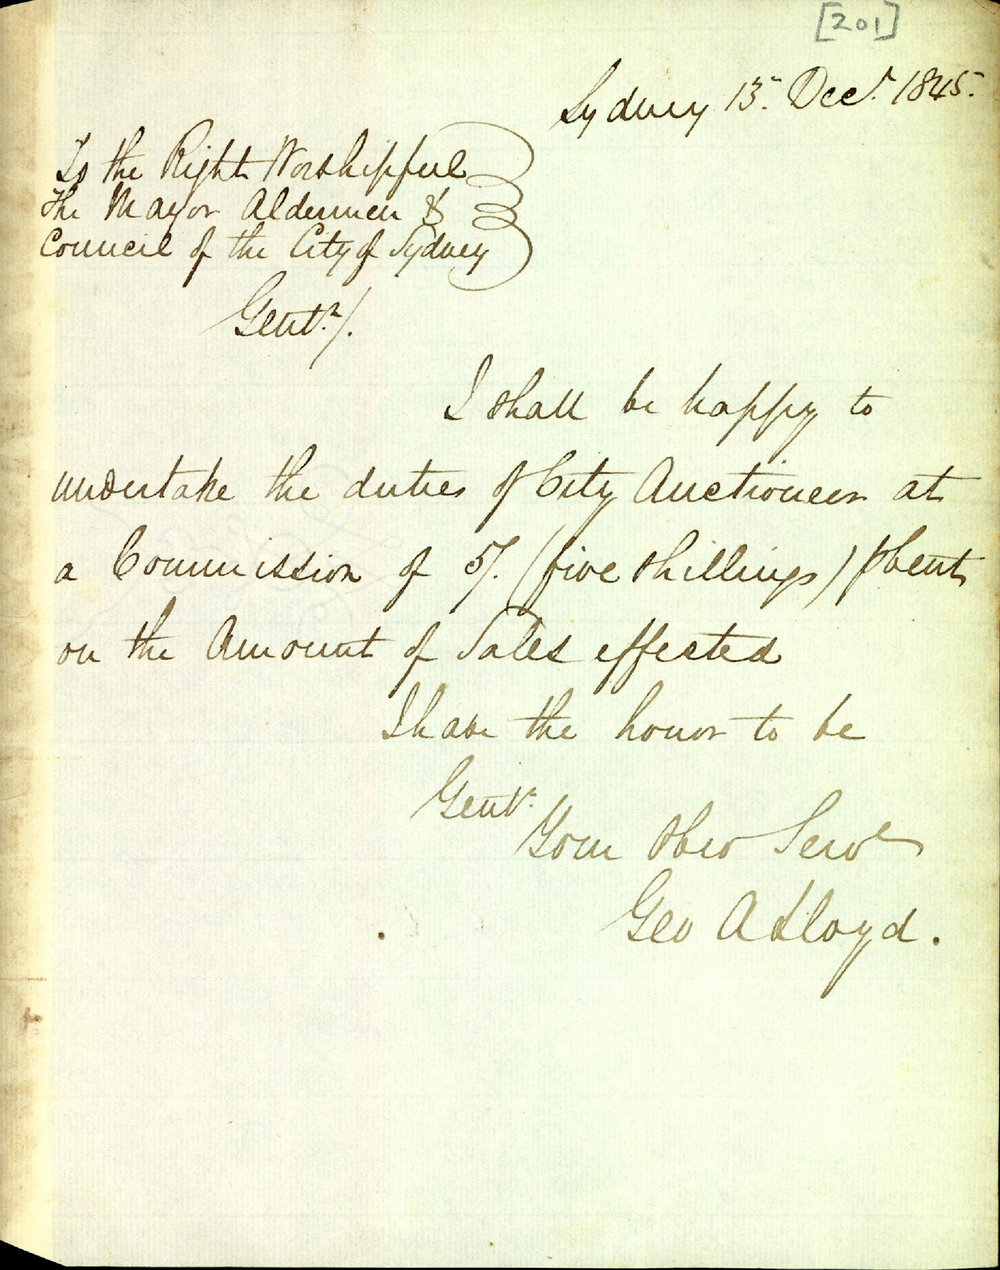 [201]
Sydney 13 Decr. 1845.
To the Right Worshipful
The Mayor Aldermen &
Council of the City of Sydney
Gentn/.
I shall be happy to
undertake the duties of City Auctioneer at
a Commission of 5/. (five shillings) pCent
on the Amount of Sales effected
I have the honor to be
Gentn.
Your Obed Servt
Geo A Lloyd.